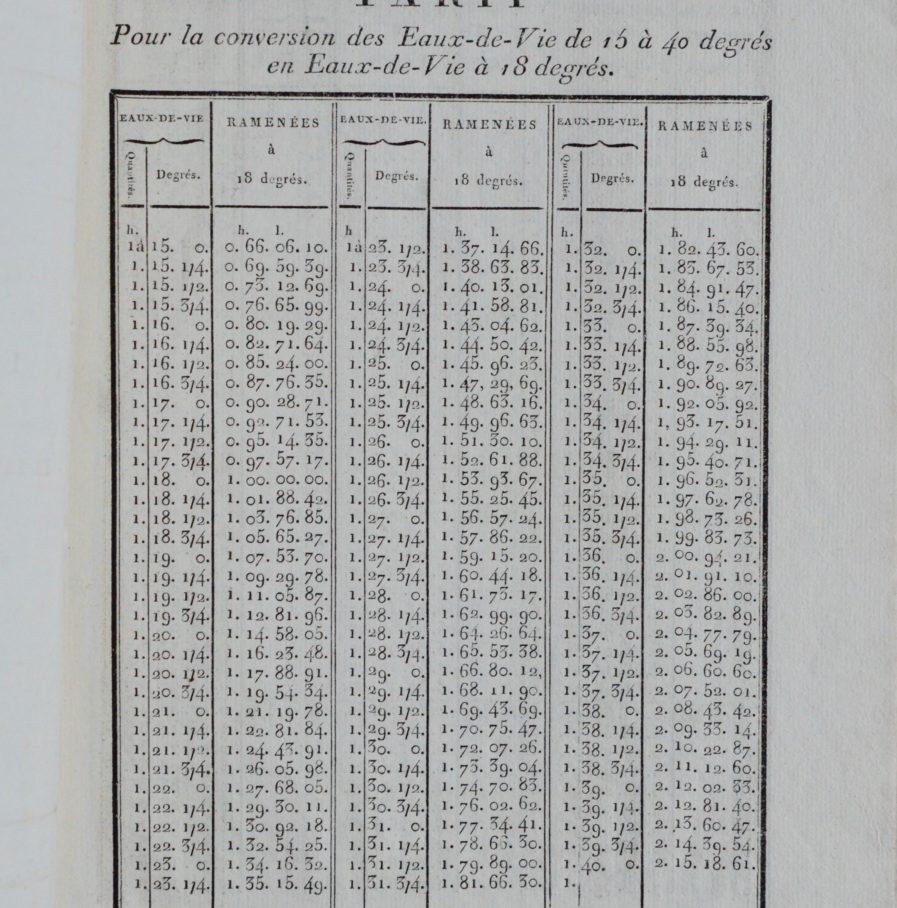 Pour la conversion des Eaux-de-Vie de 15 à 40 degrés
en Eaux-de-Vie à 18 degrés.
EAUX-DE-VIE RAMENÉES EAUX-DE-VIE. RAMENÉES EAUX-DE-VIE. RAMENÉES
à à à
Quantités. Degrés. 18 degrés. Quantités. Degrés. 18 degrés. Quantités. Degrés. 18 degrés.
h. h. l. h h. l. h. l.
1à 15. 0. 0. 66. 06. 10. 1à 23. 1/2. 1. 37. 14. 66. 1. 32. 0. 1. 82. 43. 60.
1. 15. 1/4. 0. 69. 59. 39. 1. 23. 3/4. 1. 38. 63. 83. 1. 32. 1/4. 1. 83. 67. 53.
1. 15. 1/2. 0. 73. 12. 69. 1. 24. 0. 1. 40. 13. 01. 1. 32. 1/2. 1. 84. 91. 47.
1. 15. 3/4. 0. 76. 65. 99. 1. 24. 1/4. 1. 41. 58. 81. 1. 32. 3/4. 1. 86. 15. 40.
1. 16. 0. 0. 80. 19. 29. 1. 24. 1/2. 1. 43. 04. 62. 1. 33. 0. 1. 87. 39. 34.
1. 16. 1/4. 0. 82. 71. 64. 1. 24. 3/4. 1. 44. 50. 42. 1. 33. 1/4. 1. 88. 55. 98.
1. 16. 1/2. 0. 85. 24. 00. 1. 25. 0. 1. 45. 96. 23. 1. 33. 1/2. 1. 89. 72. 63.
1. 16. 3/4. 0. 87. 76. 35. 1. 25. 1/4. 1. 47, 29. 69. 1. 33. 3/4. 1. 90. 89. 27.
1. 17. 0. 0. 90. 28. 71. 1. 25. 1/2. 1. 48. 63. 16. 1. 34. 0. 1. 92. 05. 92.
1. 17. 1/4. 0. 92. 71. 53. 1. 25. 3/4. 1. 49. 96. 63. 1. 34. 1/4. 1, 93. 17. 51.
1. 17. 1/2. 0. 95. 14. 35. 1. 26. 0. 1. 51. 30. 10. 1. 34. 1/2. 1. 94. 29. 11.
1. 17. 3/4. 0. 97. 57. 17. 1. 26. 1/4. 1. 52. 61. 88. 1. 34. 3/4. 1. 95. 40. 71.
1. 18. 0. 1. 00. 00. 00. 1. 26. 1/2. 1. 53. 93. 67. 1. 35. 0. 1. 96. 52. 31.
1. 18. 1/4. 1. 01. 88. 42. 1. 26. 3/4. 1. 55. 25. 45. 1. 35. 1/4. 1. 97. 62. 78.
1. 18. 1/2. 1. 03. 76. 85. 1. 27. 0. 1. 56. 57. 24. 1. 35. 1/2. 1. 98. 73. 26.
1. 18. 3/4. 1. 05. 65. 27. 1. 27. 1/4. 1. 57. 86. 22. 1. 35. 3/4. 1. 99. 83. 73.
1. 19. 0. 1. 07. 53. 70. 1. 27. 1/2. 1. 59. 15. 20. 1. 36. 0. 2. 00. 94. 21.
1. 19. 1/4. 1. 09. 29. 78. 1. 27. 3/4. 1. 60. 44. 18. 1. 36. 1/4. 2. 01. 91. 10.
1. 19. 1/2. 1. 11. 05. 87. 1. 28. 0. 1. 61. 73. 17. 1. 36. 1/2. 2. 02. 86. 00.
1. 19. 3/4. 1. 12. 81. 96. 1. 28. 1/4. 1. 62. 99. 90. 1. 36. 3/4. 2. 03. 82. 89.
1. 20. 0. 1. 14. 58. 05. 1. 28. 1/2. 1. 64. 26. 64. 1. 37. 0. 2. 04. 77. 79.
1. 20. 1/4. 1. 16. 23. 48. 1. 28. 3/4. 1. 65. 53. 38. 1. 37. 1/4. 2. 05. 69. 19.
1. 20. 1/2. 1. 17. 88. 91. 1. 29. 0. 1. 66. 80. 12, 1. 37. 1/2. 2. 06. 60. 60.
1. 20. 3/4. 1. 19. 54. 34. 1. 29. 1/4. 1. 68. 11. 90. 1. 37. 3/4. 2. 07. 52. 01.
1. 21. 0. 1. 21. 19. 78. 1. 29. 1/2. 1. 69. 43. 69. 1. 38. 0. 2. 08. 43. 42.
1. 21. 1/4. 1. 22. 81. 84. 1. 29. 3/4. 1. 70. 75. 47. 1. 38. 1/4. 2. 09. 33. 14.
1. 21. 1/2. 1. 24. 43. 91. 1. 30. 0. 1. 72. 07. 26. 1. 38. 1/2. 2. 10. 22. 87.
1. 21. 3/4. 1. 26. 05. 98. 1. 30. 1/4. 1. 73. 39. 04. 1. 38. 3/4. 2. 11. 12. 60.
1. 22. 0. 1. 27. 68. 05. 1. 30. 1/2. 1. 74. 70. 83. 1. 39. 0. 2. 12. 02. 33.
1. 22. 1/4. 1. 29. 30. 11. 1. 30. 3/4. 1. 76. 02. 62. 1. 39. 1/4. 2. 12. 81. 40.
1. 22. 1/2. 1. 30. 92. 18. 1. 31. 0. 1. 77. 34. 41. 1. 39. 1/2. 2. 13. 60. 47.
1. 22. 3/4. 1. 32. 54. 25. 1. 31. 1/4. 1. 78. 66. 30. 1. 39. 3/4. 2. 14. 39. 54.
1. 23. 0. 1. 34. 16. 32. 1. 31. 1/2. 1. 79. 89. 00. 1. 40. 0. 2. 15. 18. 61.
1. 23. 1/4. 1. 35. 15. 49. 1. 31. 3/4. 1. 81. 66. 30. 1.